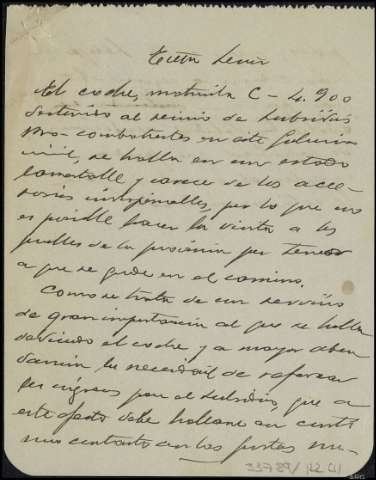 El coche, matricula C-4.900
destinado al servicio de subsidios
pro-combatientes en este Gobierno
civil, se halla en un estado
lamentable y carece de los acce-
sorios indispensables, por lo que no
es posible hacer la visita a los
pueblos de la provincia por temor
a que se quede en el camino.
Como se trata de un servicio
de gran importancia al que se halla
el coche y a mayor abun
damiento, la necesidad de reforzar
los ingresos para el subsidio, que a
este efecto debe hallarse en conti
nuo contacto con las Juntas mu-